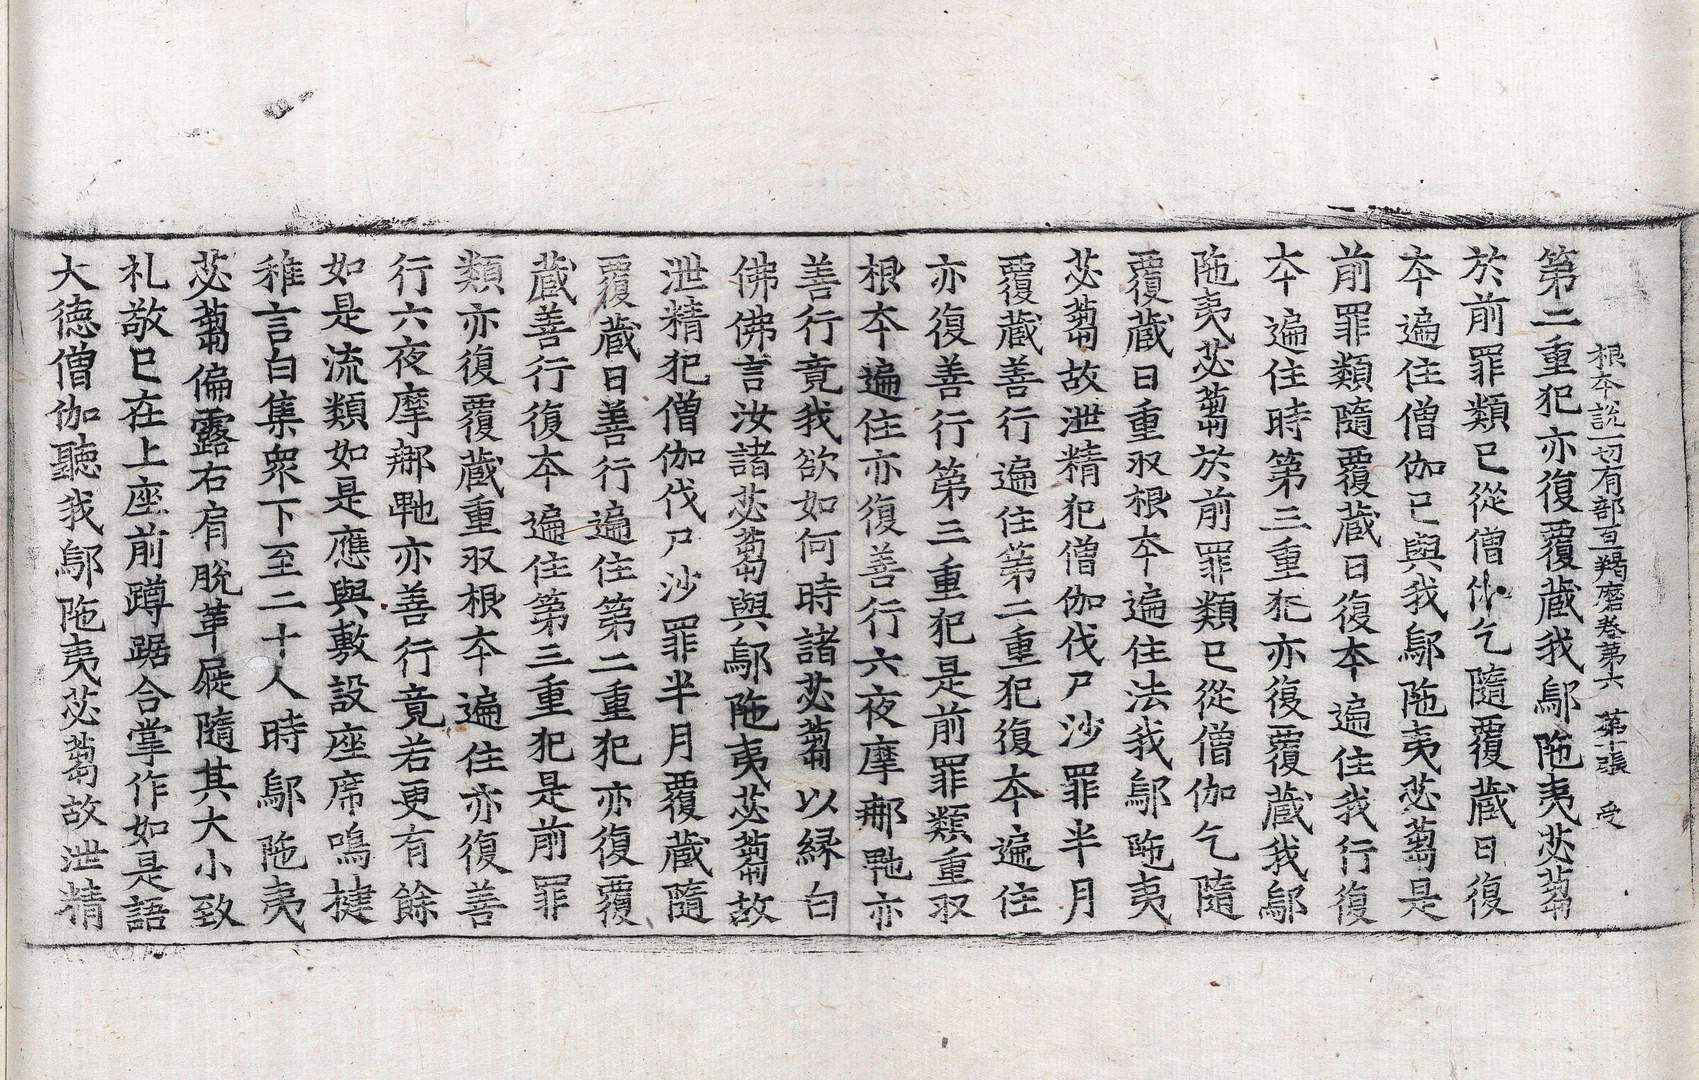 根本說一切有部百一羯磨卷第六 第十張 受
第二重犯亦復覆蔵我鄔陁夷苾蒭
於前罪類巳從僧伽乞隨覆蔵日復
夲遍住僧伽巳與我鄔陁夷苾蒭是
前罪類隨覆蔵日復夲遍住我行復
夲遍住時第三重犯亦復覆蔵我鄔
陁夷苾蒭於前罪類巳從僧伽乞隨
覆蔵日重収根夲遍住法我鄔陁夷
苾蒭故泄精犯僧伽伐尸沙罪半月
覆蔵善行遍住第二重犯復夲遍住
亦復善行第三重犯是前罪類重収
根夲遍住亦復善行六夜摩𨚗𭆤亦
善行竟我欲如何時諸苾蒭以縁白
佛佛言汝諸苾蒭與鄔陁夷苾蒭故
泄精犯僧伽伐尸沙罪半月覆蔵隨
覆蔵日善行遍住第二重犯亦復覆
蔵善行復夲遍住第三重犯是前罪
類亦復覆蔵重収根夲遍住亦復善
行六夜摩𨚗𭆤亦善行竟若更有餘
如是流類如是應與敷設座席鳴揵
稚言白集衆下至二十人時鄔陁夷
苾蒭偏露右肩脫革屣隨其大小致
礼敬巳在上座前蹲踞合掌作如是語
大徳僧伽聽我鄔陁夷苾蒭故泄精